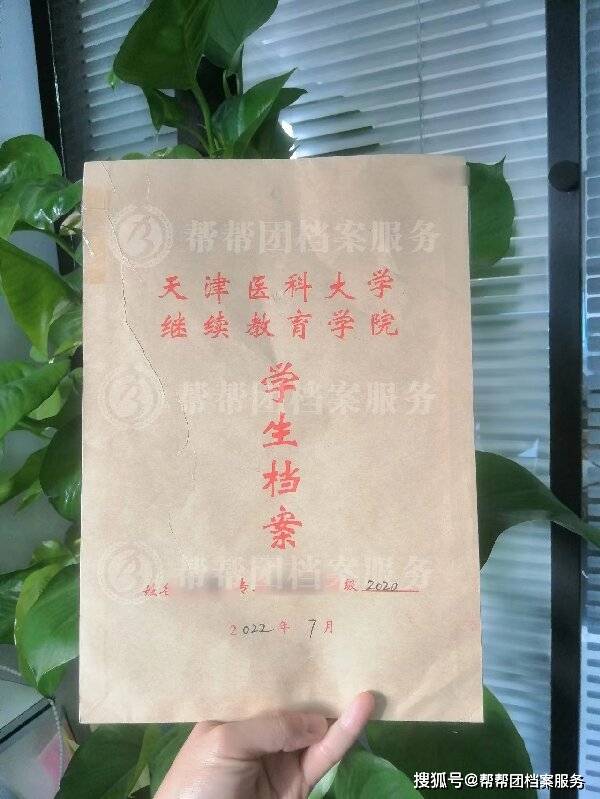 帮帮团档案服务
天津医科大学
继续教育学院
帮帮团档案服务
学生档案
帮帮团档案服务
姓名 专 级 2020
2022年7月
搜狐号@帮帮团档案服务